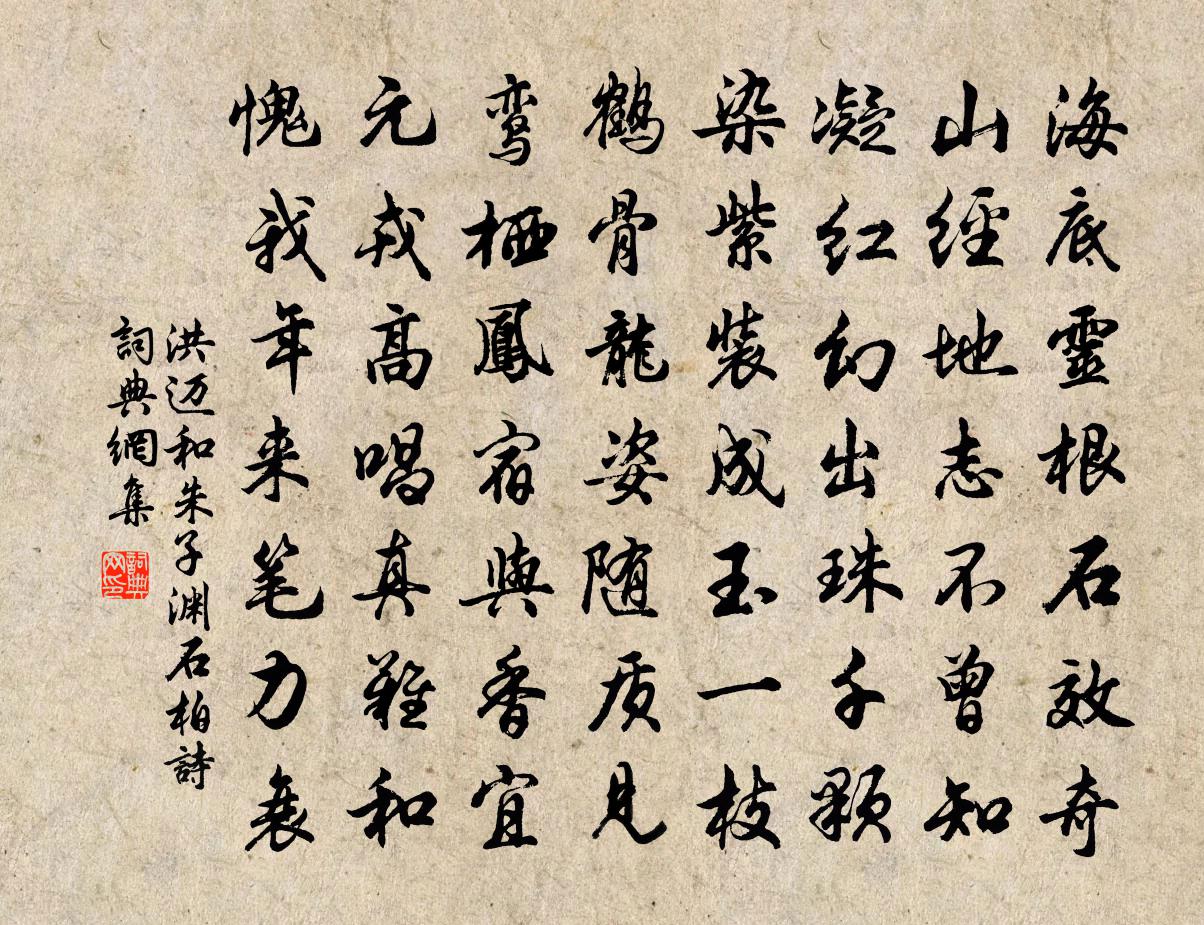 海底靈根石效奇
山經地志不曾知
凝红幻出珠千顆
染紫裝成玉一枝
鶴骨龍姿随质見
鸾栖鳳宿與香宜
元戎高唱真難和
愧我年来笔力衰
洪迈和朱子渊石柏詩
詞典網集
詞典网印